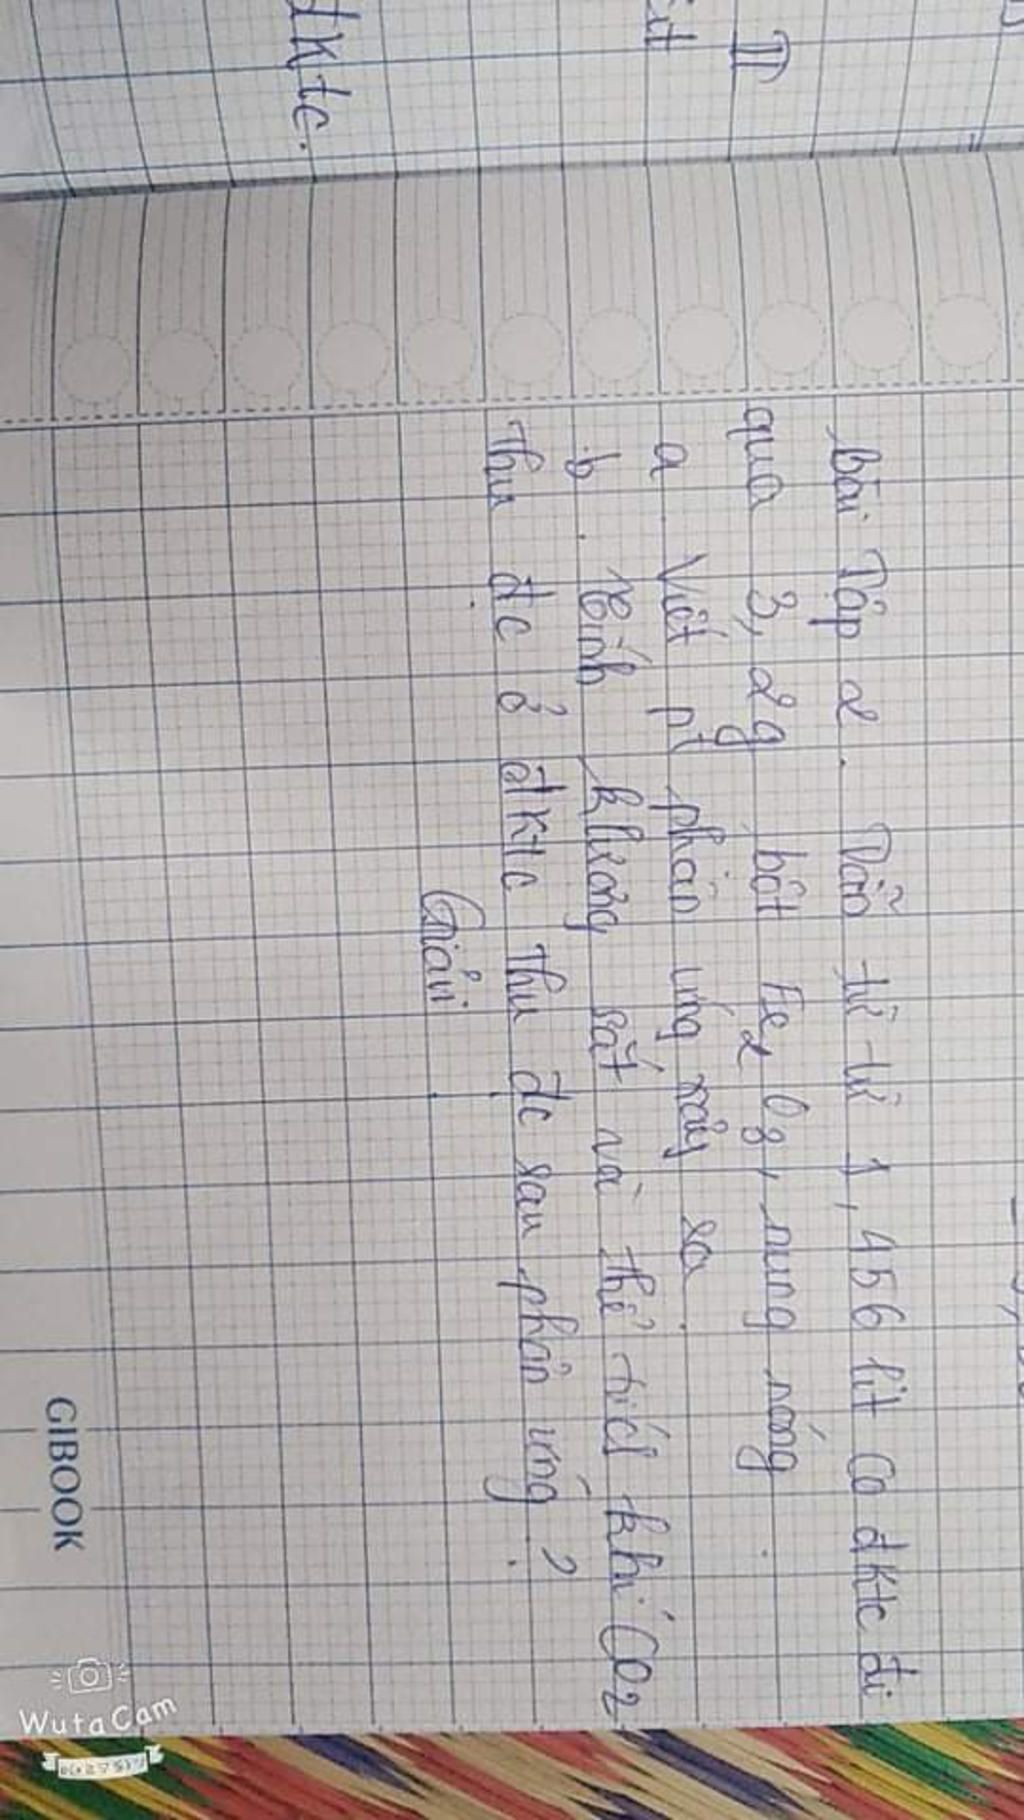 bài Tập 2. Dẫn từ từ 1,456 lít CO đktc đi
qua 3,2g bột Fe2O3, nung nóng.
a. Viết pt phản ứng xảy ra.
b. Tính klượng sắt và thể tích khí CO2
thu đc ở đktc thu đc sau phản ứng?
Giải
đktc.
II
ít
GIBOOK
WutaCam